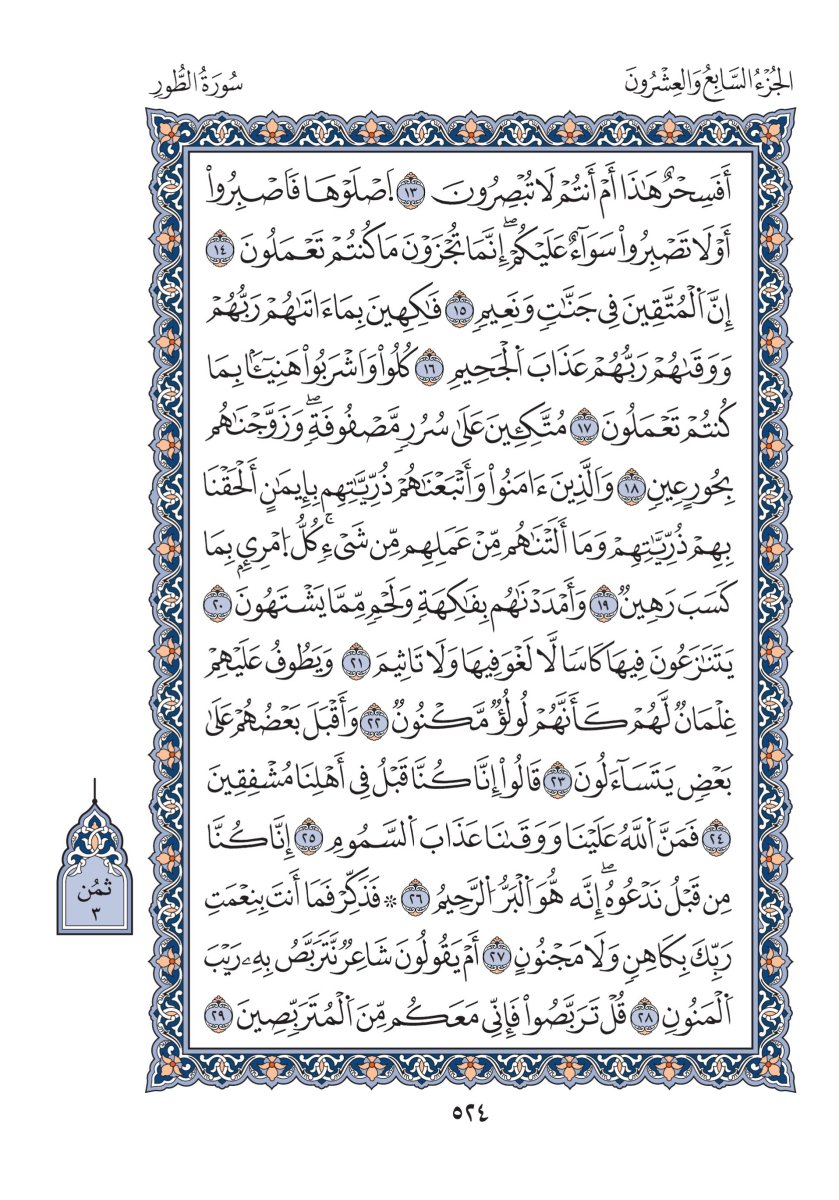 الجُزْءُ السَّابِعُ وَالعِشْرُونَ
سُورَةُ الطُّورِ
أَفَسِحْرٌ هَٰذَا أَمْ أَنتُمْ لَا تُبْصِرُونَ ١٣ اِصْلَوْهَا فَاصْبِرُواْ
أَوْ لَا تَصْبِرُواْ سَوَآءٌ عَلَيْكُمْۖ إِنَّمَا تُجْزَوْنَ مَا كُنتُمْ تَعْمَلُونَ ١٤
إِنَّ اَلْمُتَّقِينَ فِي جَنَّٰتٍ وَنَعِيمٍ ١٥ فَٰكِهِينَ بِمَا ءَاتَىٰهُمْ رَبُّهُمْ
وَوَقَىٰهُمْ رَبُّهُمْ عَذَابَ اَلْجَحِيمِ ١٦ كُلُواْ وَاشْرَبُواْ هَنِيٓـَٔۢا بِمَا
كُنتُمْ تَعْمَلُونَ ١٧ مُتَّكِـِٔينَ عَلَىٰ سُرُرٍ مَّصْفُوفَةٍۖ وَزَوَّجْنَٰهُم
بِحُورٍ عِينٍ ١٨ وَالَّذِينَ ءَامَنُواْ وَأَتْبَعْنَٰهُمْ ذُرِّيَّٰتِهِم بِإِيمَٰنٍ أَلْحَقْنَا
بِهِمْ ذُرِّيَّٰتِهِمْ وَمَا أَلَتْنَٰهُم مِّنْ عَمَلِهِم مِّن شَيْءٖۚ كُلُّ اُمْرِيِٕۭ بِمَا
كَسَبَ رَهِينٌ ١٩ وَأَمْدَدْنَٰهُم بِفَٰكِهَةٍ وَلَحْمٍ مِّمَّا يَشْتَهُونَ ٢٠
يَتَنَٰزَعُونَ فِيهَا كَاسًا لَّا لَغْوَ فِيهَا وَلَا تَاثِيمَ ٢١ وَيَطُوفُ عَلَيْهِمْ
غِلْمَانٌ لَّهُمْ كَأَنَّهُمْ لُولُؤٌ مَّكْنُونٌ ٢٢ وَأَقْبَلَ بَعْضُهُمْ عَلَىٰ
بَعْضٍ يَتَسَآءَلُونَ ٢٣ قَالُواْ إِنَّا كُنَّا قَبْلُ فِي أَهْلِنَا مُشْفِقِينَ
٢٤ فَمَنَّ اَللَّهُ عَلَيْنَا وَوَقَىٰنَا عَذَابَ اَلسَّمُومِ ٢٥ إِنَّا كُنَّا
مِن قَبْلُ نَدْعُوهُۖ إِنَّه هُّوَ اَلْبَرُّ اُلرَّحِيمُ ٢٦ ۞ فَذَكِّرْ فَمَا أَنتَ بِنِعْمَتِ
رَبِّكَ بِكَاهِنٍ وَلَا مَجْنُونٍ ٢٧ أَمْ يَقُولُونَ شَاعِرٌ نَّتَرَبَّصُ بِهِۦ رَيْبَ
اَلْمَنُونِ ٢٨ قُلْ تَرَبَّصُواْ فَإِنِّي مَعَكُم مِّنَ اَلْمُتَرَبِّصِينَ ٢٩
ثُمُن
٣
٥٢٤